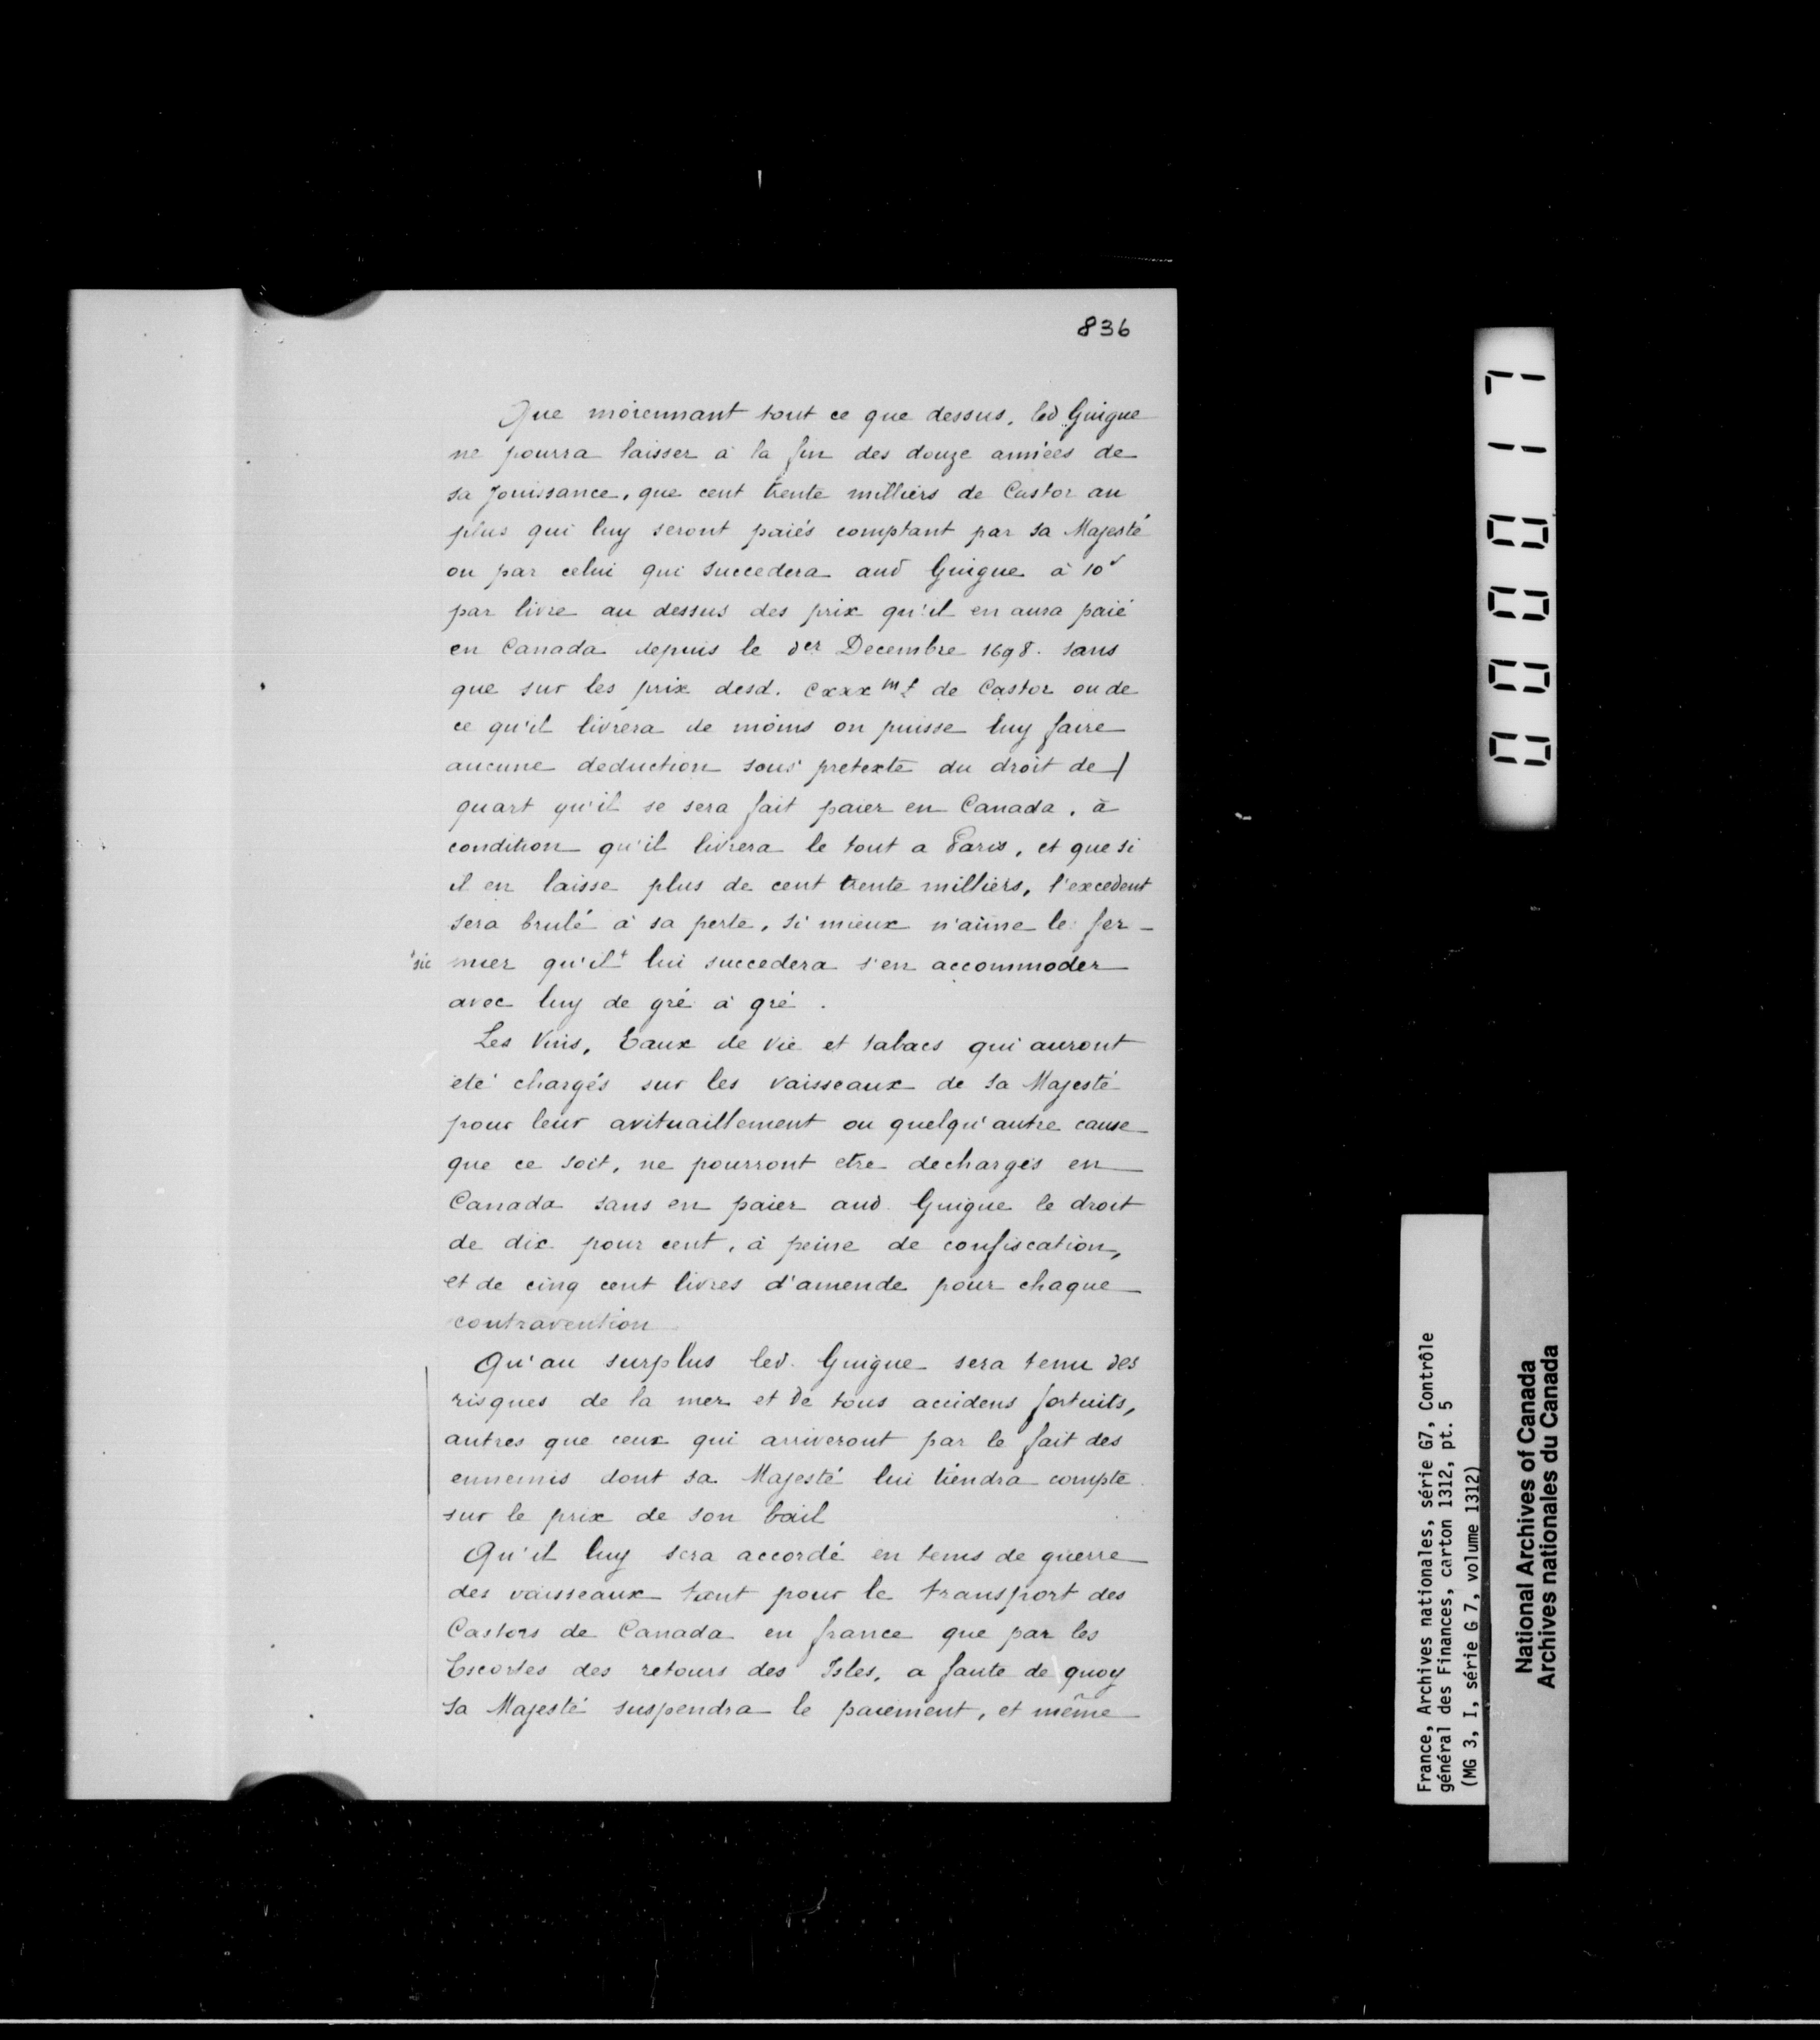 836
Que moiennant tout ce que dessus, led Guigue
ne pourra laisser à la fin des douze années de
sa Jouissance, que cent trente milliers de Castor au
plus qui luy seront paiés comptant par sa Majesté
ou par celui qui succedera aud Guigue à 10ˢ
par livre au dessus des prix qu'il en aura paié
en Canada depuis le der Decembre 1698. sans
que sur les prix desd. cxxx ᵐ£ de Castor ou de
ce qu'il livrera de moins on puisse luy faire
aucune deduction sous pretexte du droit de
quart qu'il se sera fait paier en Canada, à
condition qu'il livrera le tout a Paris, et que si
il en laisse plus de cent trente milliers, l'excedent
sera brulé à sa perte, si mieux n'aime le fer-
+sic mier qu'il+ lui succedera s'en accommoder
avec luy de gré à gré.
Les Vins, Eaux de Vie et tabacs qui auront
eté chargés sur les vaisseaux de sa Majesté
pour leur avituaillement ou quelqu'autre cause
que ce soit, ne pourront etre dechargés en
Canada sans en paier aud. Guigue le droit
de dix pour cent, à peine de confiscation,
et de cinq cent livres d'amende pour chaque
contravention
Qu'au surplus led. Guigue sera tenu des
risques de la mer et de tous accidens fortuits,
autres que ceux qui arriveront par le fait des
ennemis dont sa Majesté lui tiendra compte
sur le prix de son bail
Qu'il luy sera accordé en tems de guerre
des vaisseaux tant pour le transport des
Castors de Canada en france que par les
Escortes des retours des Isles, a faute de quoy
sa Majesté suspendra le paiement, et même
000017
France, Archives nationales, série G7, Contrôle
général des Finances, carton 1312, pt. 5
(MG 3, I, série G 7, volume 1312)
National Archives of Canada
Archives nationales du Canada